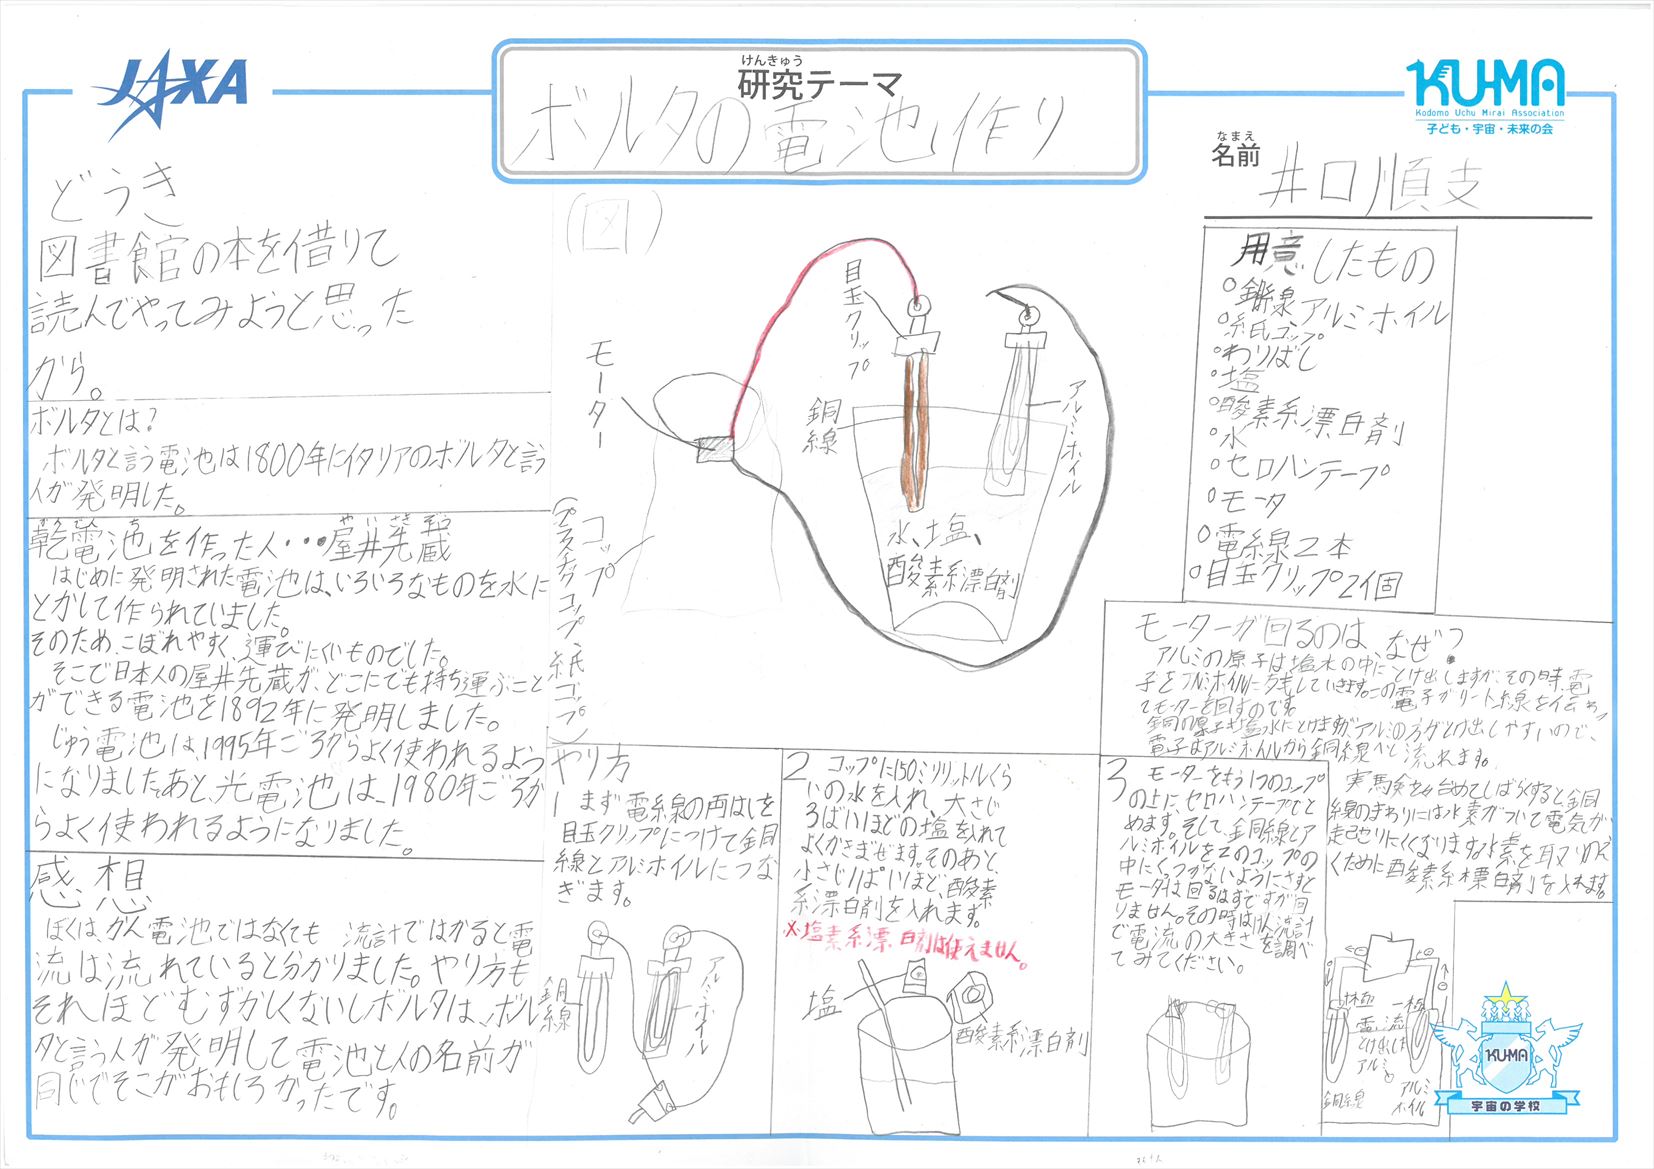 JAXA
けんきゅう
研究テーマ
ボルタの電池作り
KU-MA
Kodomo Uchu Mirai Association
子ども・宇宙・未来の会
なまえ
名前
井口順支
どうき
図書館の本を借りて
読んでやってみようと思った
から。
ボルタとは?
ボルタと言う電池は1800年にイタリアのボルタと言う
人が発明した。
かんでんち やいさきぞう
乾電池を作った人・・・屋井先蔵
はじめに発明された電池は、いろいろなものを水に
とかして作られていました。
そのため、こぼれやすく、運びにくいものでした。
そこで日本人の屋井先蔵が、どこにでも持ち運ぶこと
ができる電池を1892年に発明しました。
じゅう電池は、1995年ごろからよく使われるよう
になりました。あと、光電池は、1980年ごろか
らよく使われるようになりました。
感想
ぼくは、かん電池ではなくても流計ではかると電
流は流れていると分かりました。やり方も
それほどむずかしくないしボルタは、ボル
タと言う人が発明して電池と人の名前が
同じでそこがおもしろかったです。
(図)
目玉クリップ
モーター
銅線
アルミホイル
コップ
(プラスチックコップ、紙コップ)
水、塩、
酸素系漂白剤
用意したもの
○銅線 アルミホイル
○紙コップ
○わりばし
○塩
○酸素系漂白剤
○水
○セロハンテープ
○モータ
○電線2本
○目玉クリップ2個
モーターが回るのは、なぜ?
アルミの原子は、塩水の中にとけ出しますが、その時、電
子をアルミホイルに残していきます。この電子がリード線を伝わっ
てモーターを回すのです。
銅の原子も塩水にとけますが、アルミの方がとけ出しやすいので、
電子はアルミホイルから銅線へと流れます。
実験を始めてしばらくすると、銅
線のまわりには水素がついて電気が
走こりにくくなります。水素を取りのぞ
くために酸素系漂白剤を入れます。
やり方
1 まず電線の両はしを
目玉クリップにつけて銅
線とアルミホイルにつな
ぎます。
銅線
アルミホイル
2 コップに150ミリリットルくら
いの水を入れ、大さじ
3ばいほどの塩を入れて
よくかきまぜます。そのあと、
小さじ1ぱいほど、酸素
系漂白剤を入れます。
※塩素系漂白剤は使えません。
塩
酸素系漂白剤
3 モーターをもう1つのコップ
の上に、セロハンテープでと
めます。そして、銅線とア
ルミホイルを2のコップの
中にくっつかないようにさすと
モータは回るはずですが回
りません。その時は検流計
で電流の大きさを調べ
てみてください。
+極
-極
電流
とけ出した
アルミ
銅線
アルミ
ホイル
KUMA
宇宙の学校